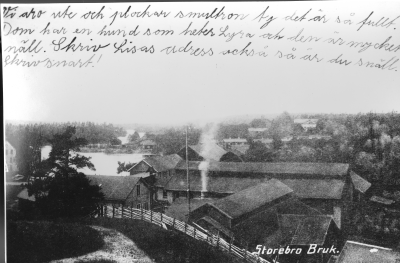 Vi äro ute och plockar smultron ty det är så fullt.
Dom har en hund som heter Lyra och den är mycket
snäll. Skriv Lisas adress också så är du snäll.
Skriv snart!
Storebro Bruk.